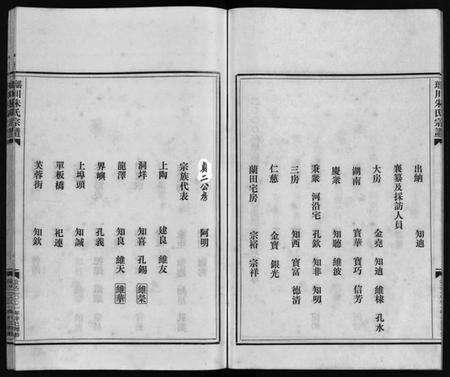 琅川朱氏宗譜
出納 知迪
襄纂及採訪人員
大房 金堯 知迪 維棣 孔水
湖南 寶華 寶巧 信芳
慶衆 知聰 維波
秉衆 河沿宅 孔欽 知非 知明
三房 知西 寶富 德清
仁慈 金寶 銀光
蘭田宅房 宗裕 宗祥
貞二公房 阿明
宗族代表
上陶 建良 維友
洞垟 知喜 孔錫 維榮
龍潭 知良 維天 維華
界嶼 孔義
上埠頭 知誠
單板橋 祀連
芙蓉街 知欽
川朱氏宗譜